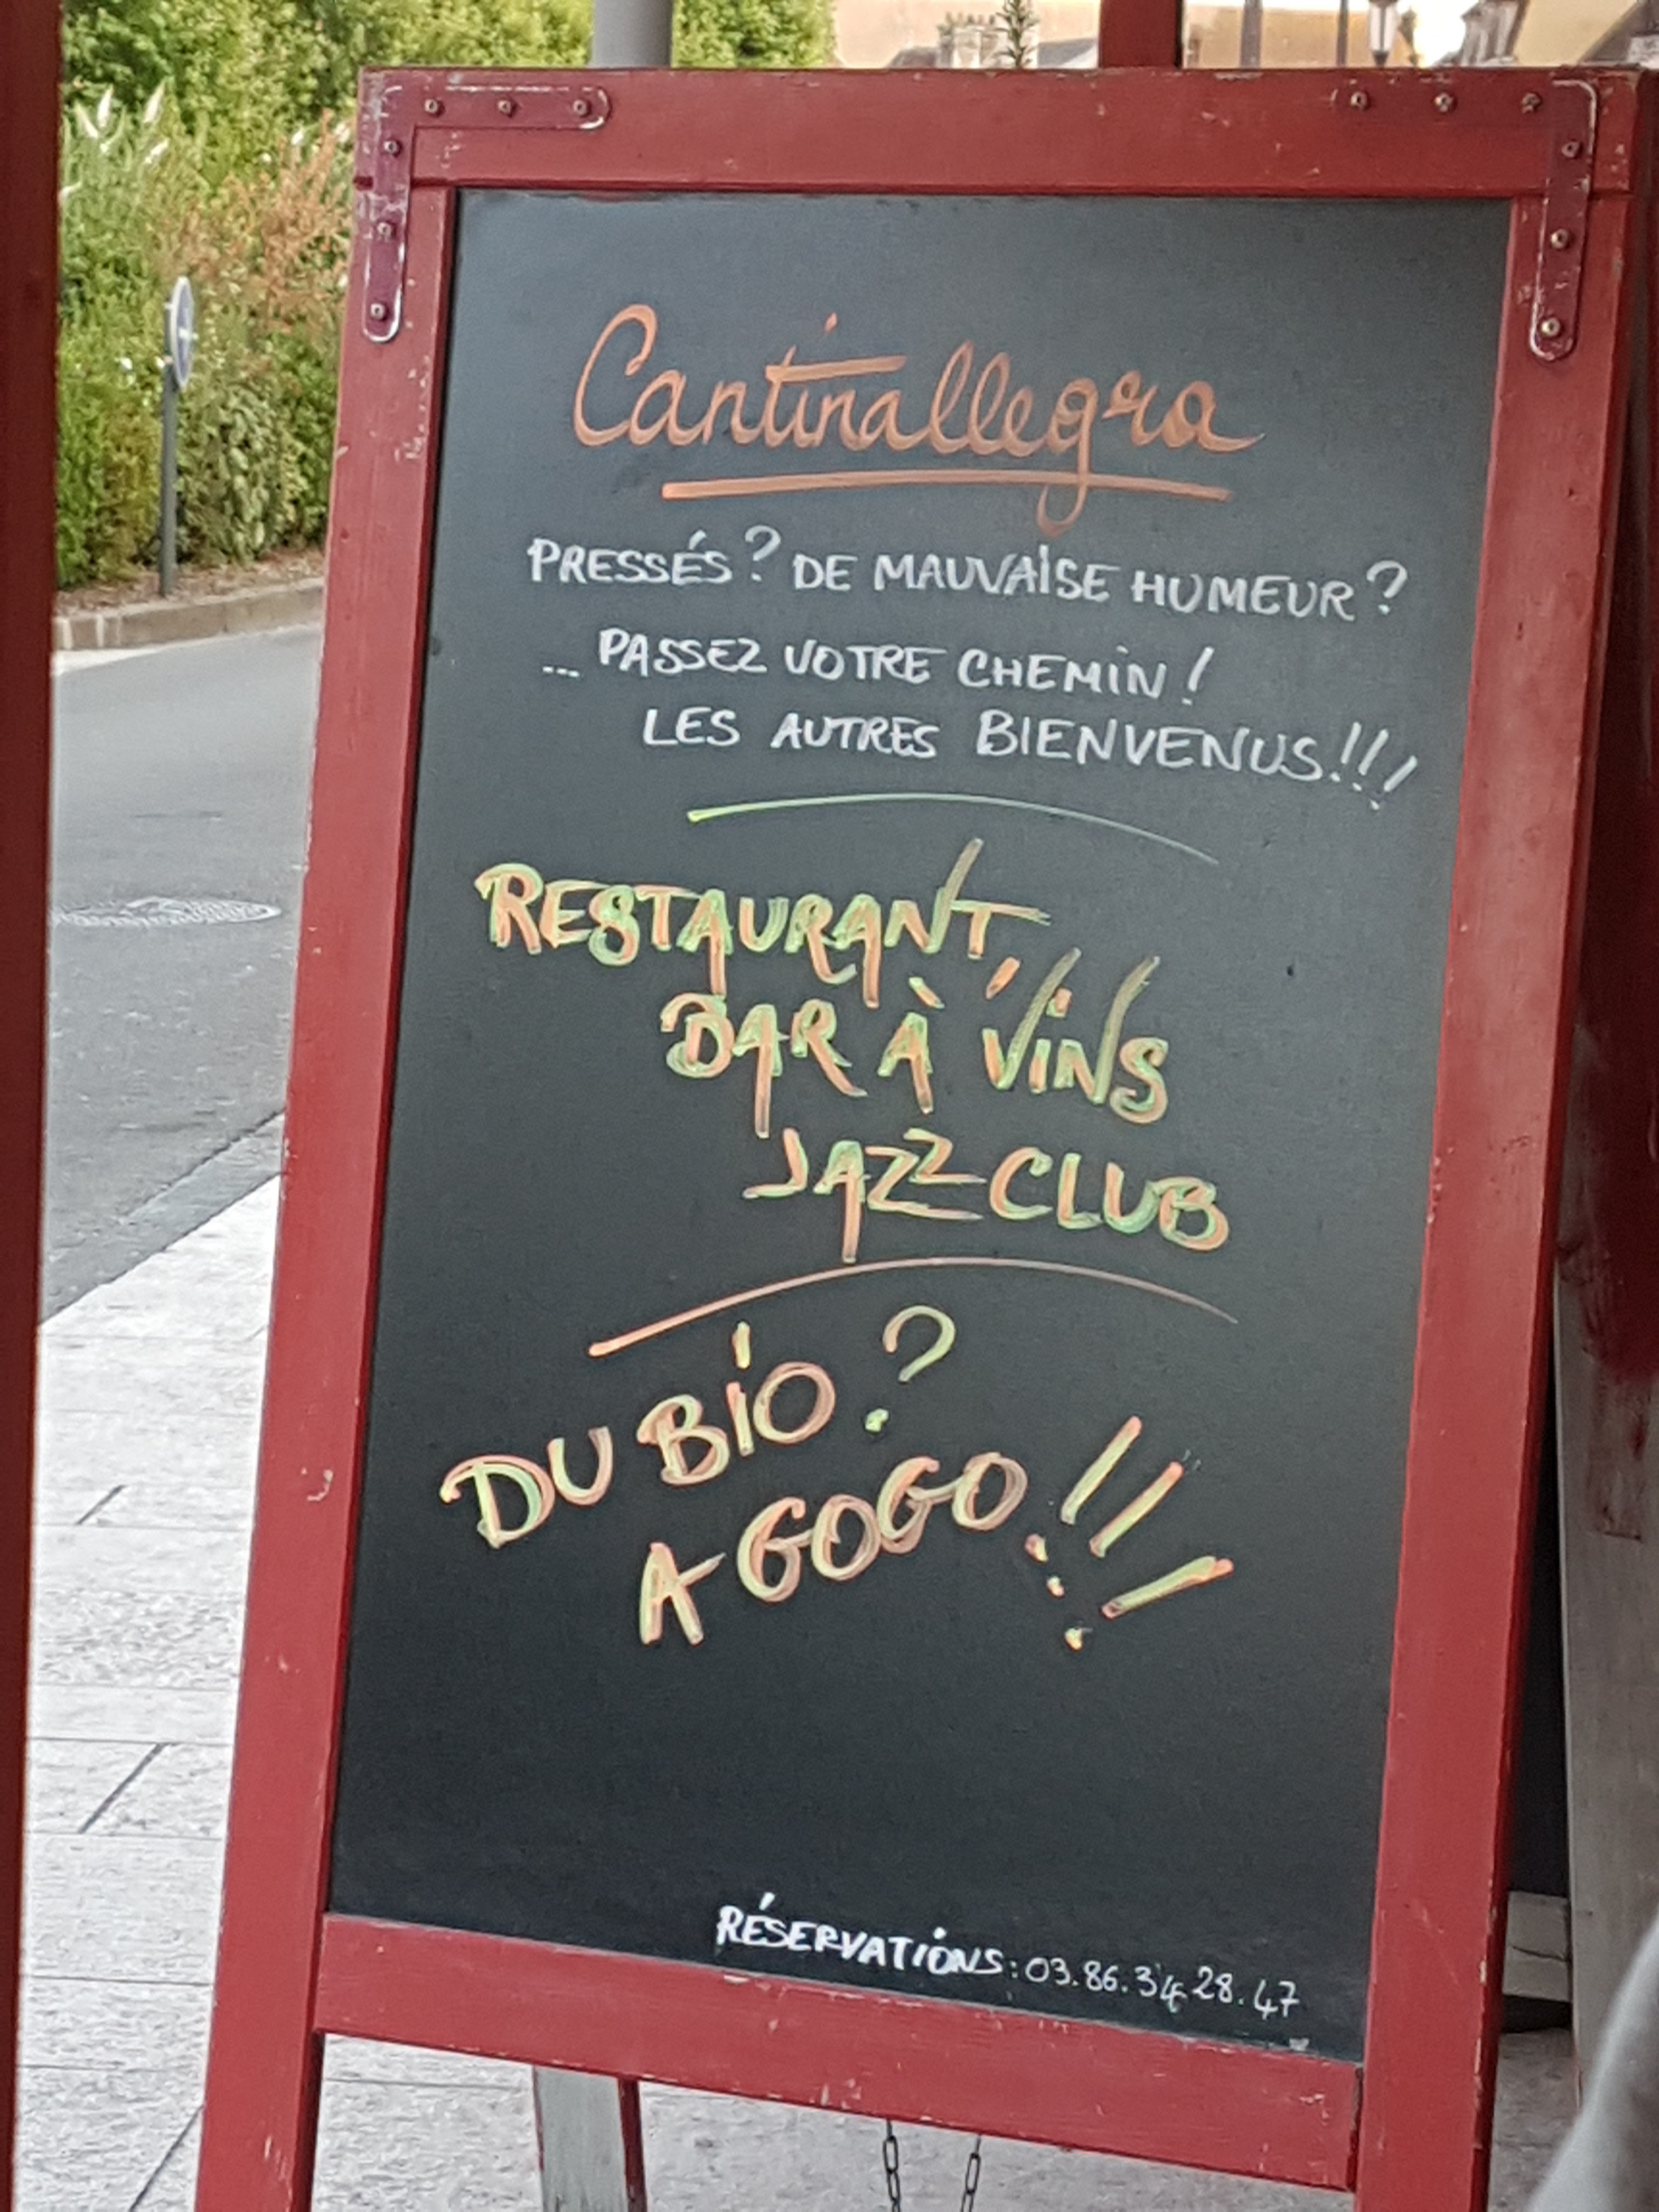 Cantinallegra
PRESSÉS? DE MAUVAISE HUMEUR?
... PASSEZ VOTRE CHEMIN!
LES AUTRES BIENVENUS!!!
RESTAURANT,
BAR À VINS
JAZZ CLUB
DU BIO?
A GOGO!!!
RÉSERVATIONS: 03.86.34.28.47